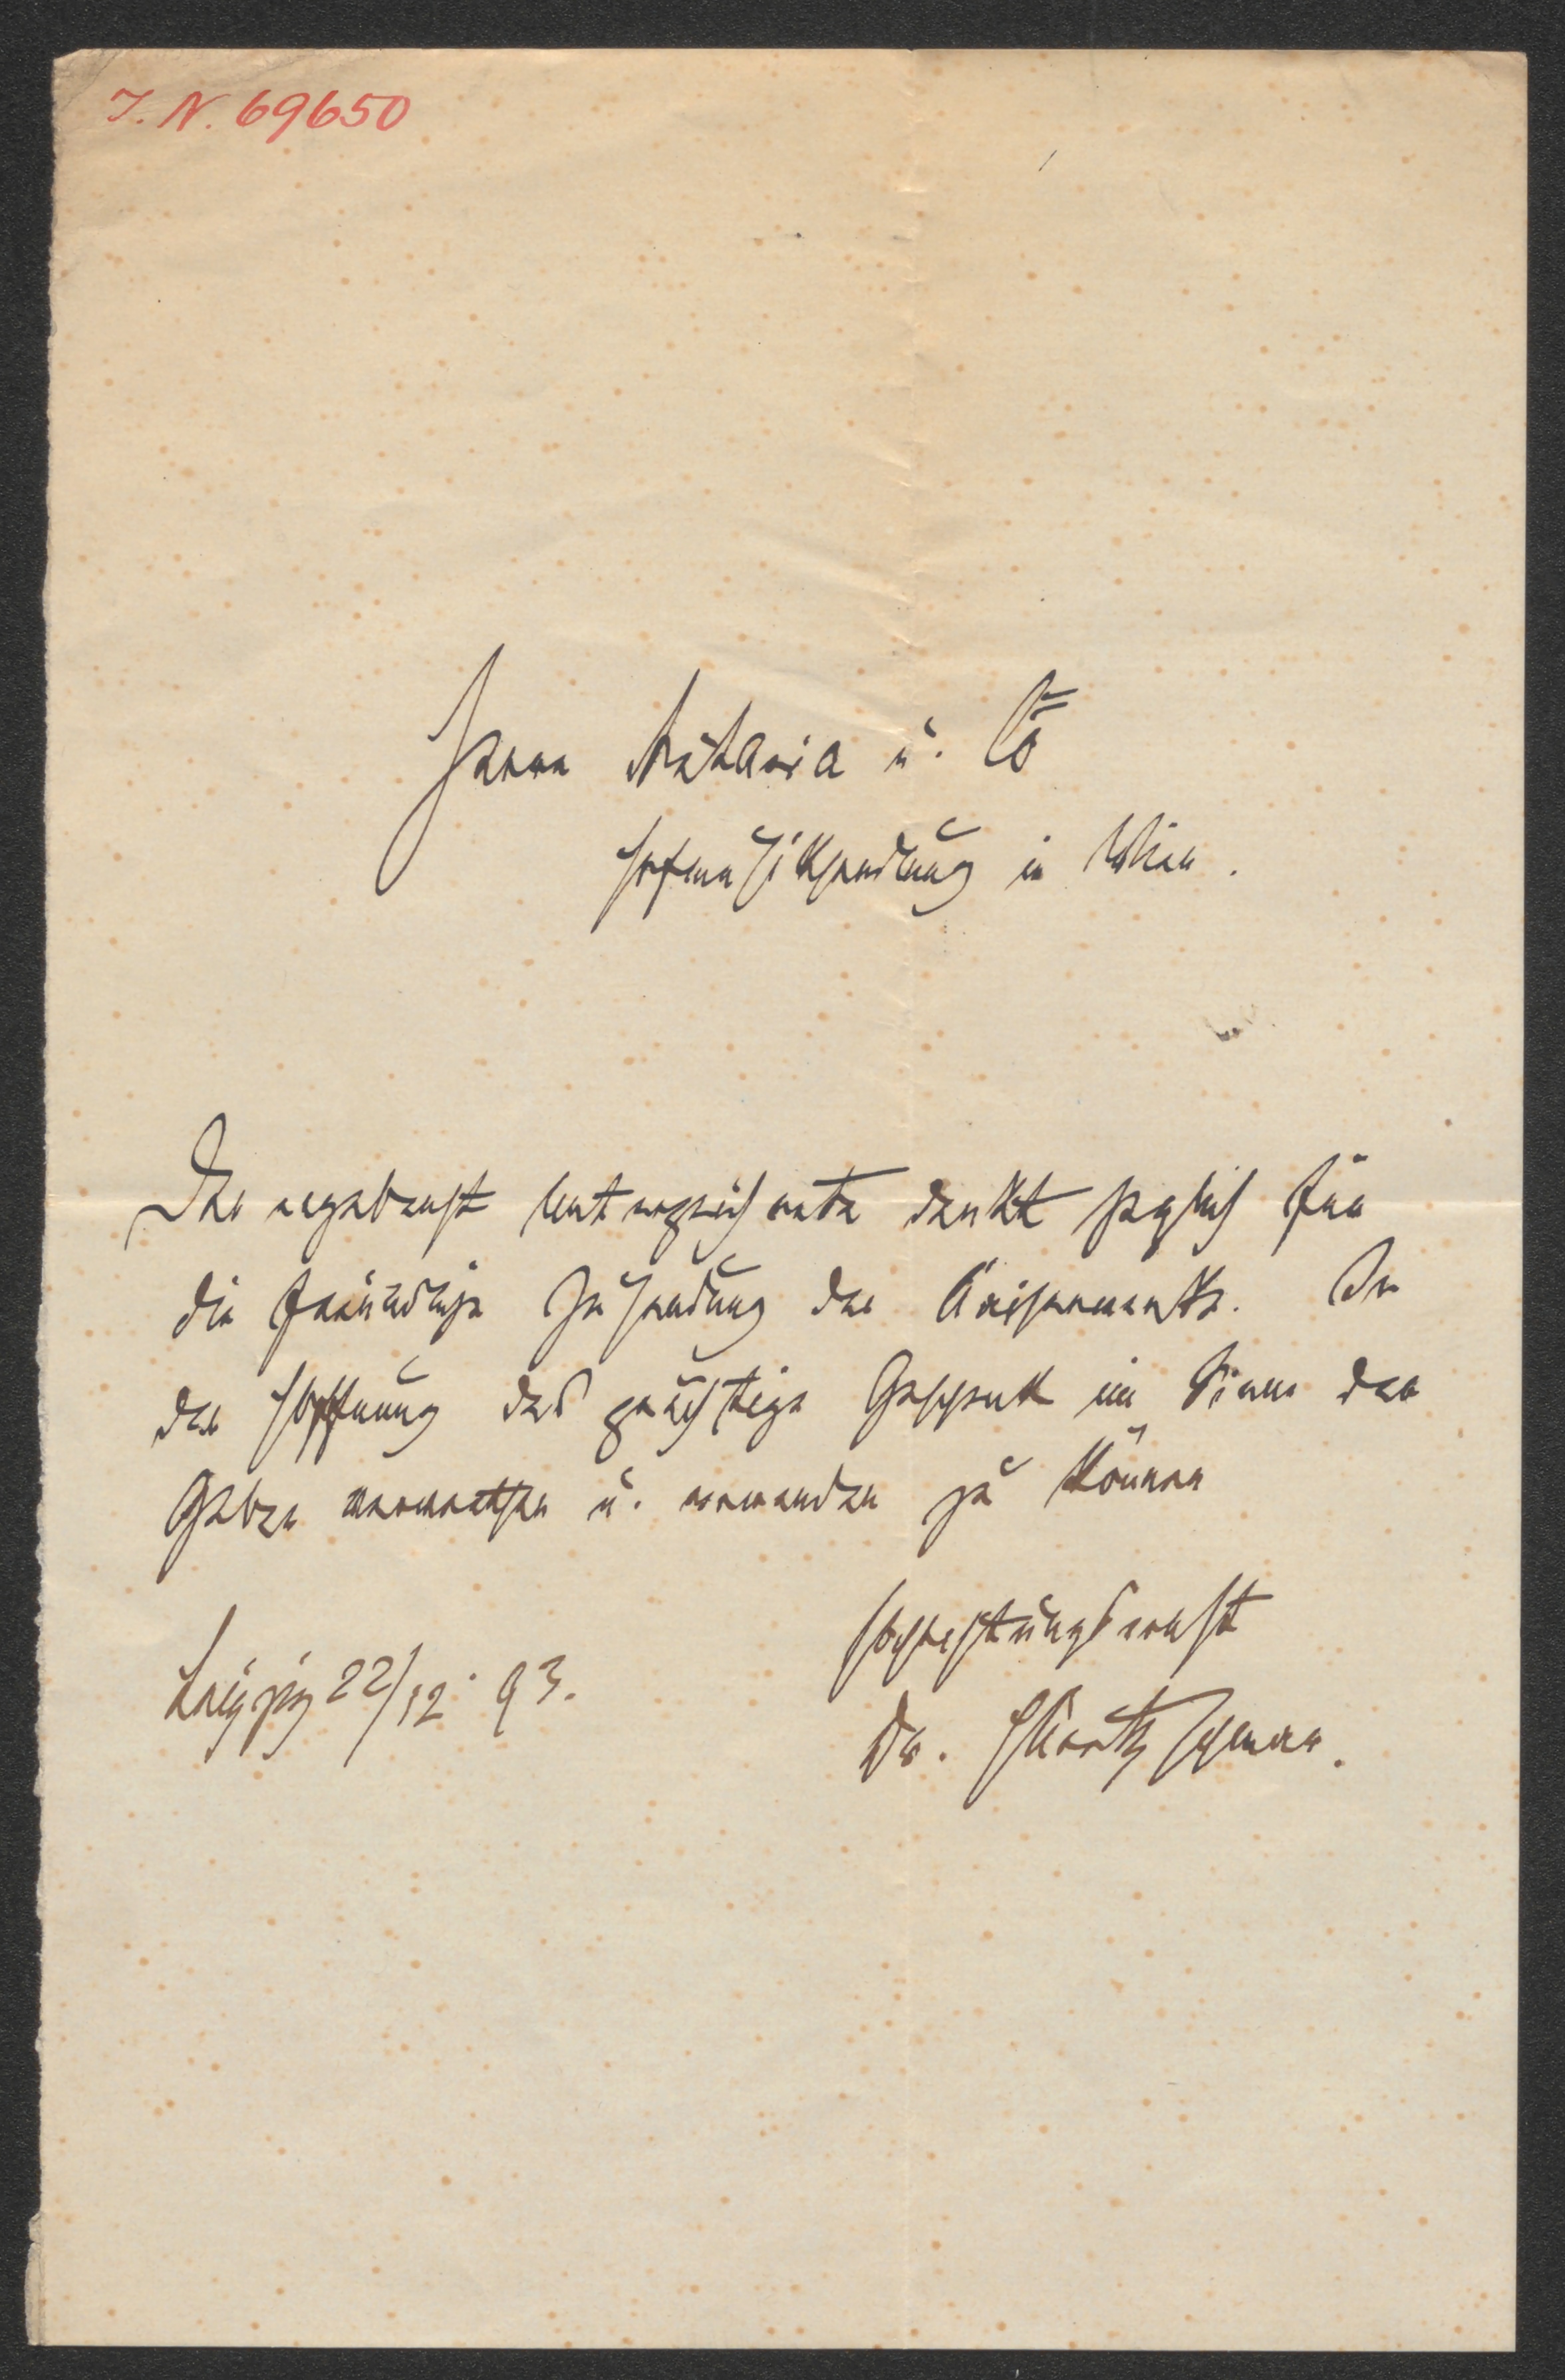 I. N. 69650
Herrn Artaria u. Co
Hofmusikhandlung in Wien.
Der ergebenst Unterzeichnete dankt herzlich für
die freundliche Zusendung des In
der Hoffnung das Geschenk im Sinne der
Geber verwerthen u. verwenden zu können
Hochachtungsvollst
Leipzig 22/12. 93.
Dr.